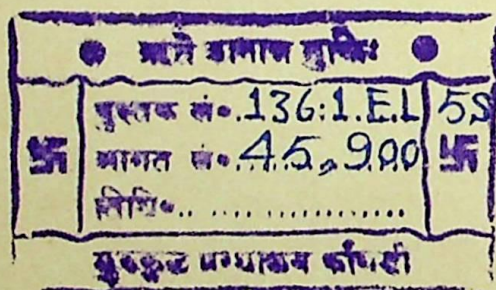 ऋते ज्ञानान्न मुक्तिः
पुस्तक सं॰ 136:1.EL 5S
आगत सं॰ 45,900
तिथि॰.. ... ..............
गुरुकुल ग्रन्थालय काँगड़ी